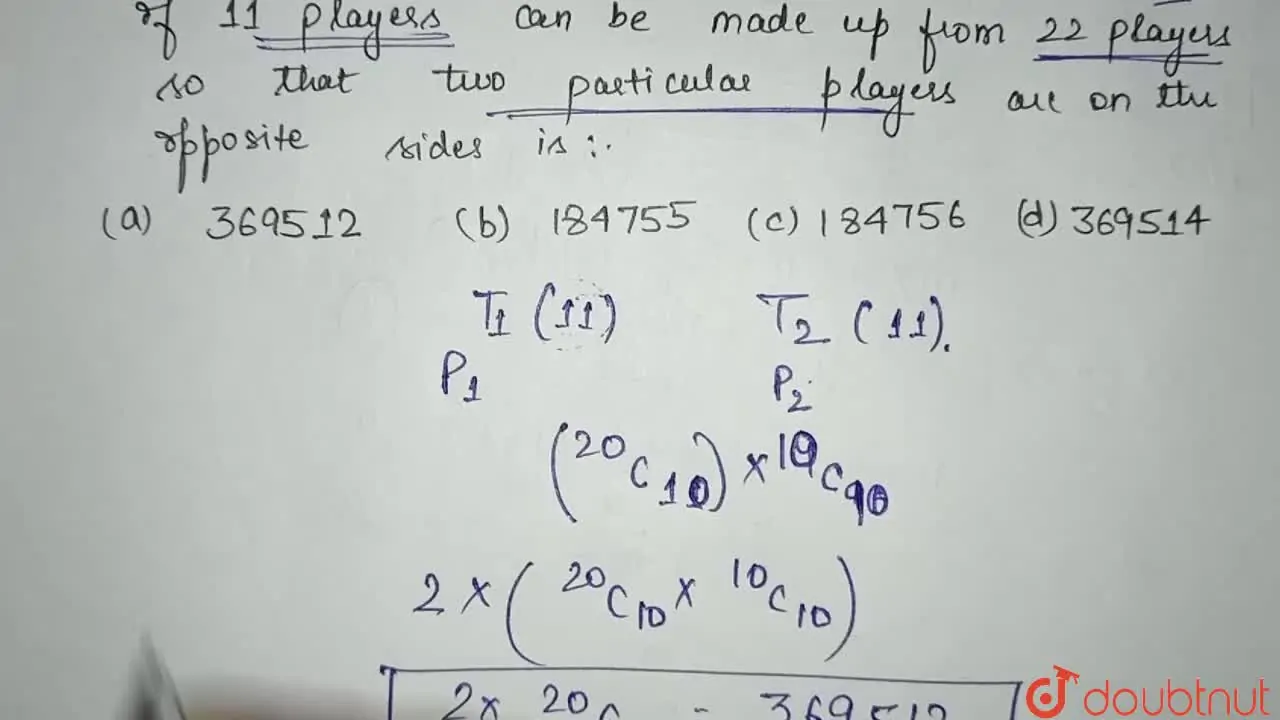 of 11 players can be made up from 22 players
so that two particular players are on the
opposite sides is :-
(a) 369512 (b) 184755 (c) 184756 (d) 369514
T1 (11) T2 (11).
P1 P2
(20C10) × 10C10
2 × (20C10 × 10C10)
2× 20C = 369512
doubtnut